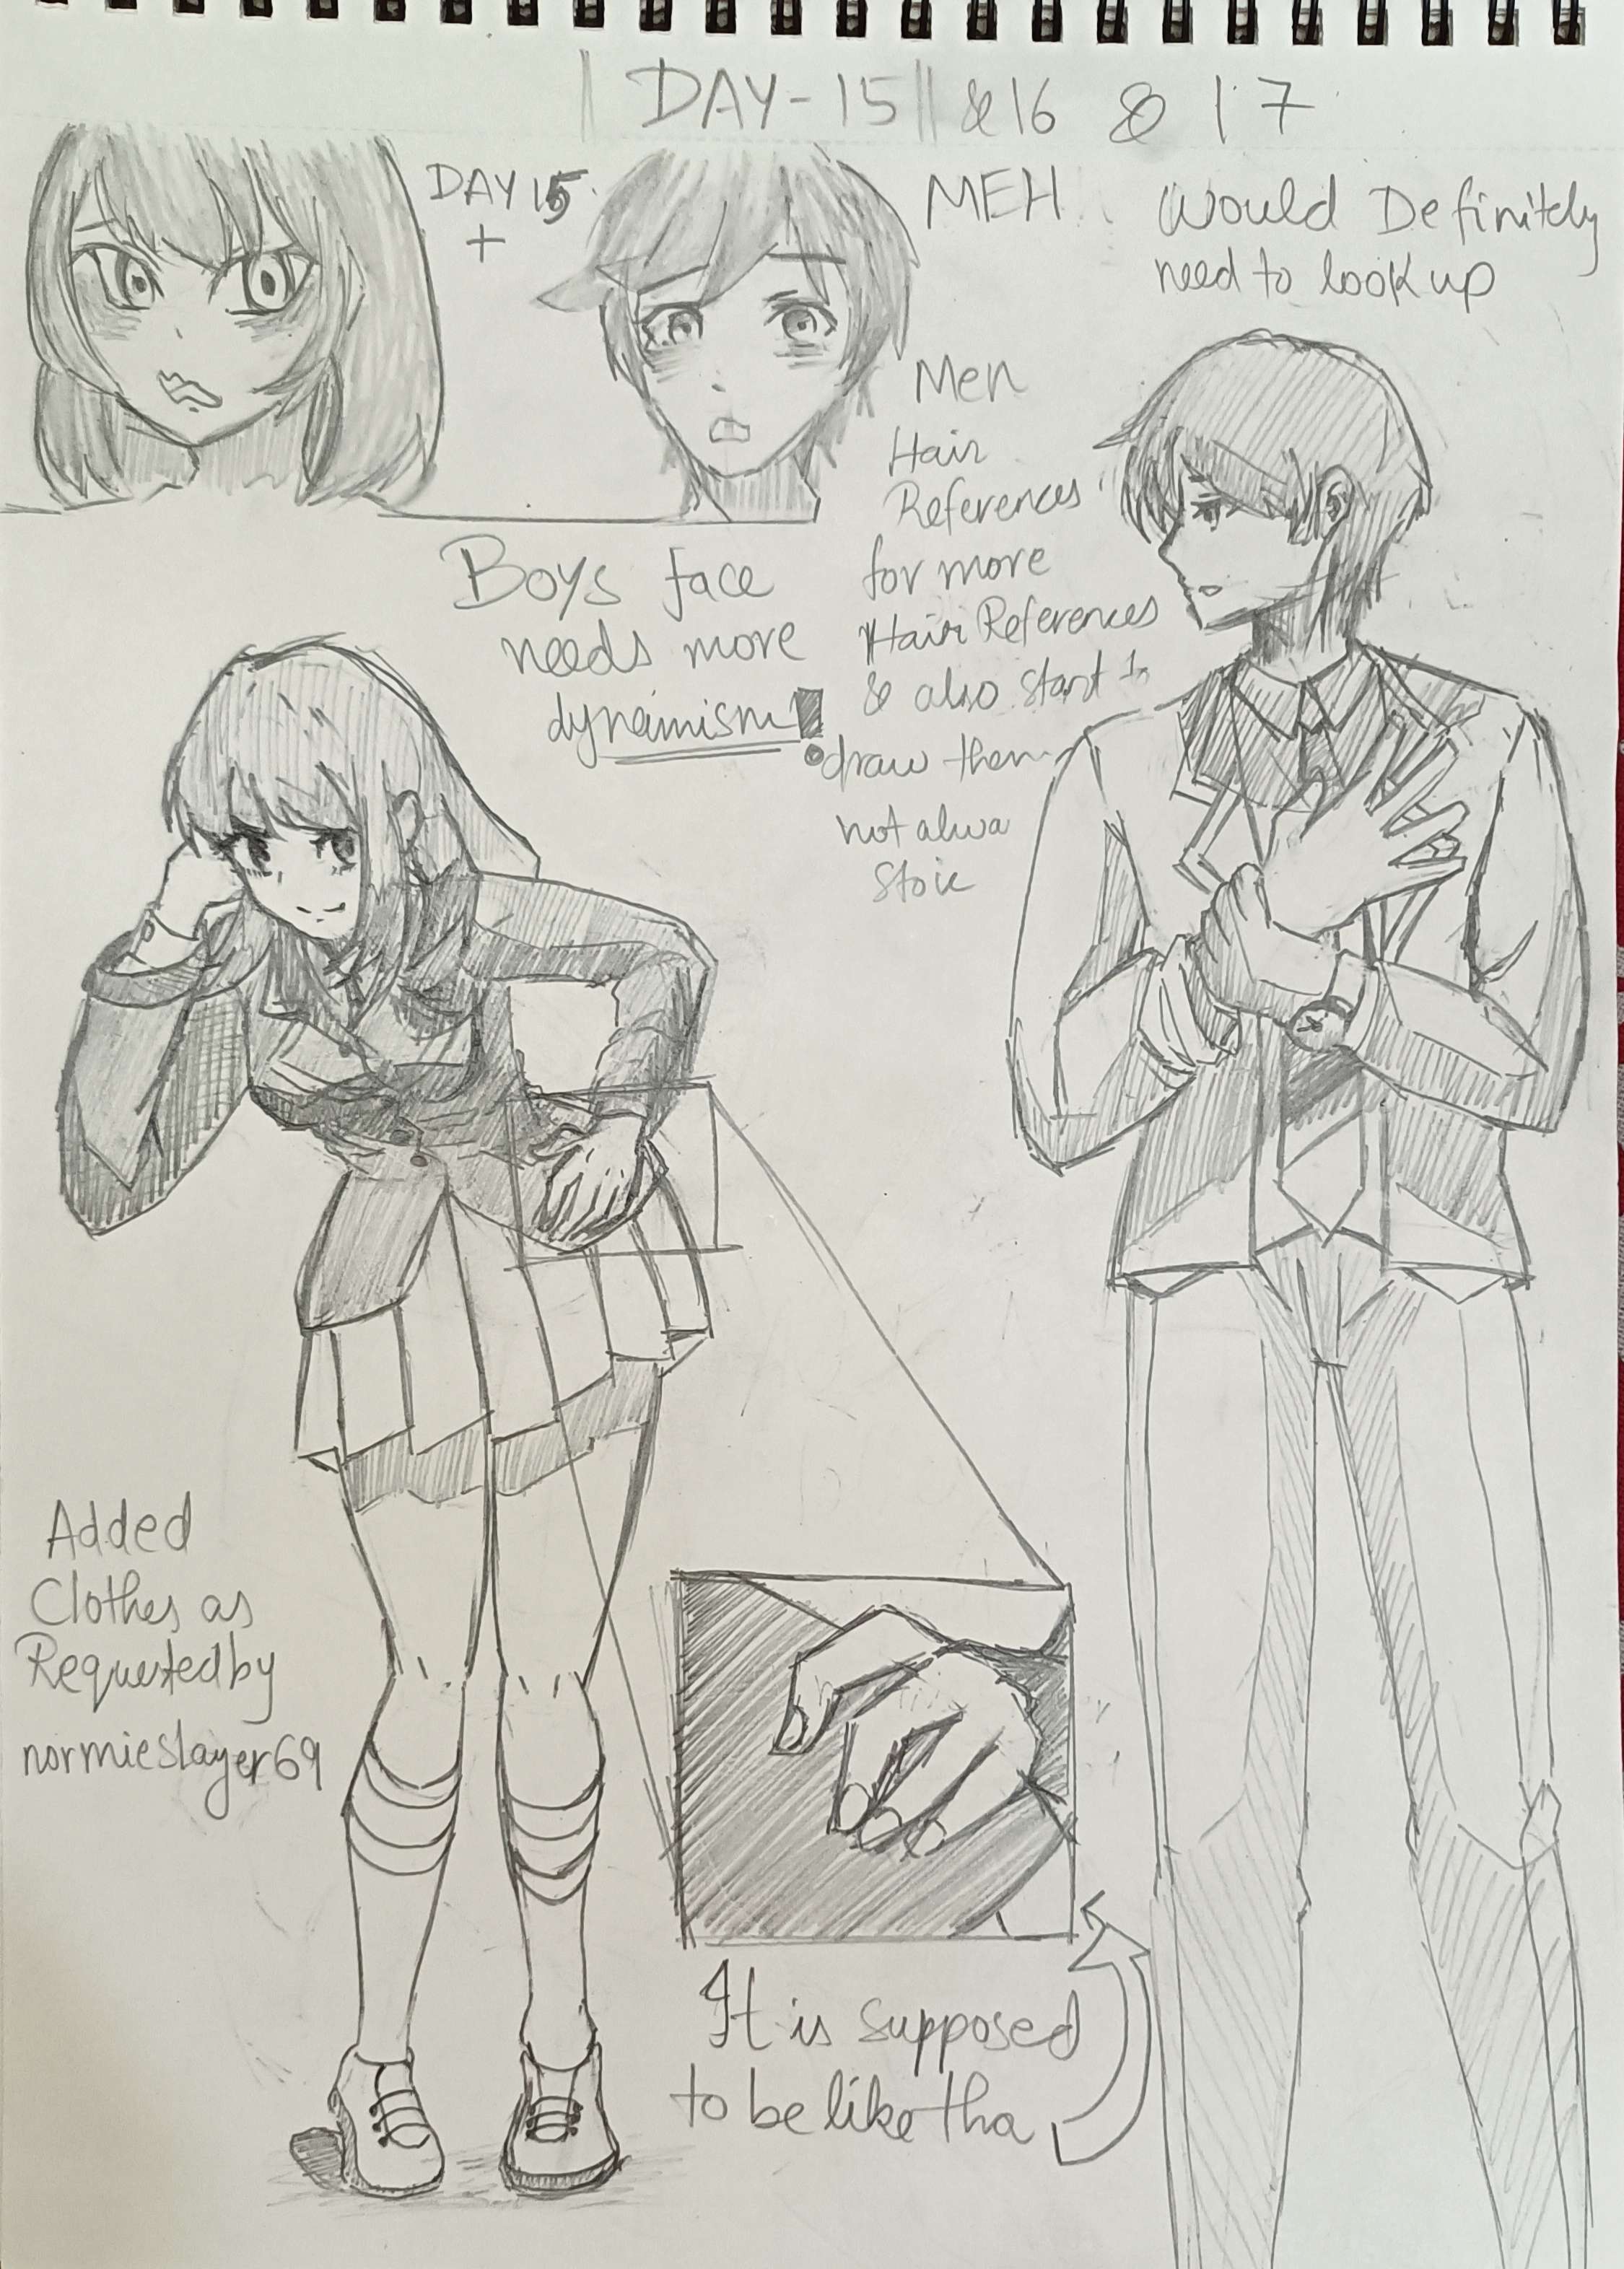 DAY-15 & 16 & 17
DAY 15
+
MEH
Would Definitely
need to look up
Men
Hair
References
for more
Hair References
& also start to
draw them
not alwa
Stoic
Boys face
needs more
dynamism!
Added
Clothes as
Requested by
normieslayer69
It is supposed
to be like tha